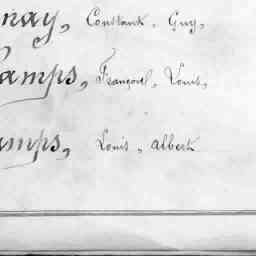 nay, Constant, Guy,
amps, François, Louis,
amps, Louis, Albert